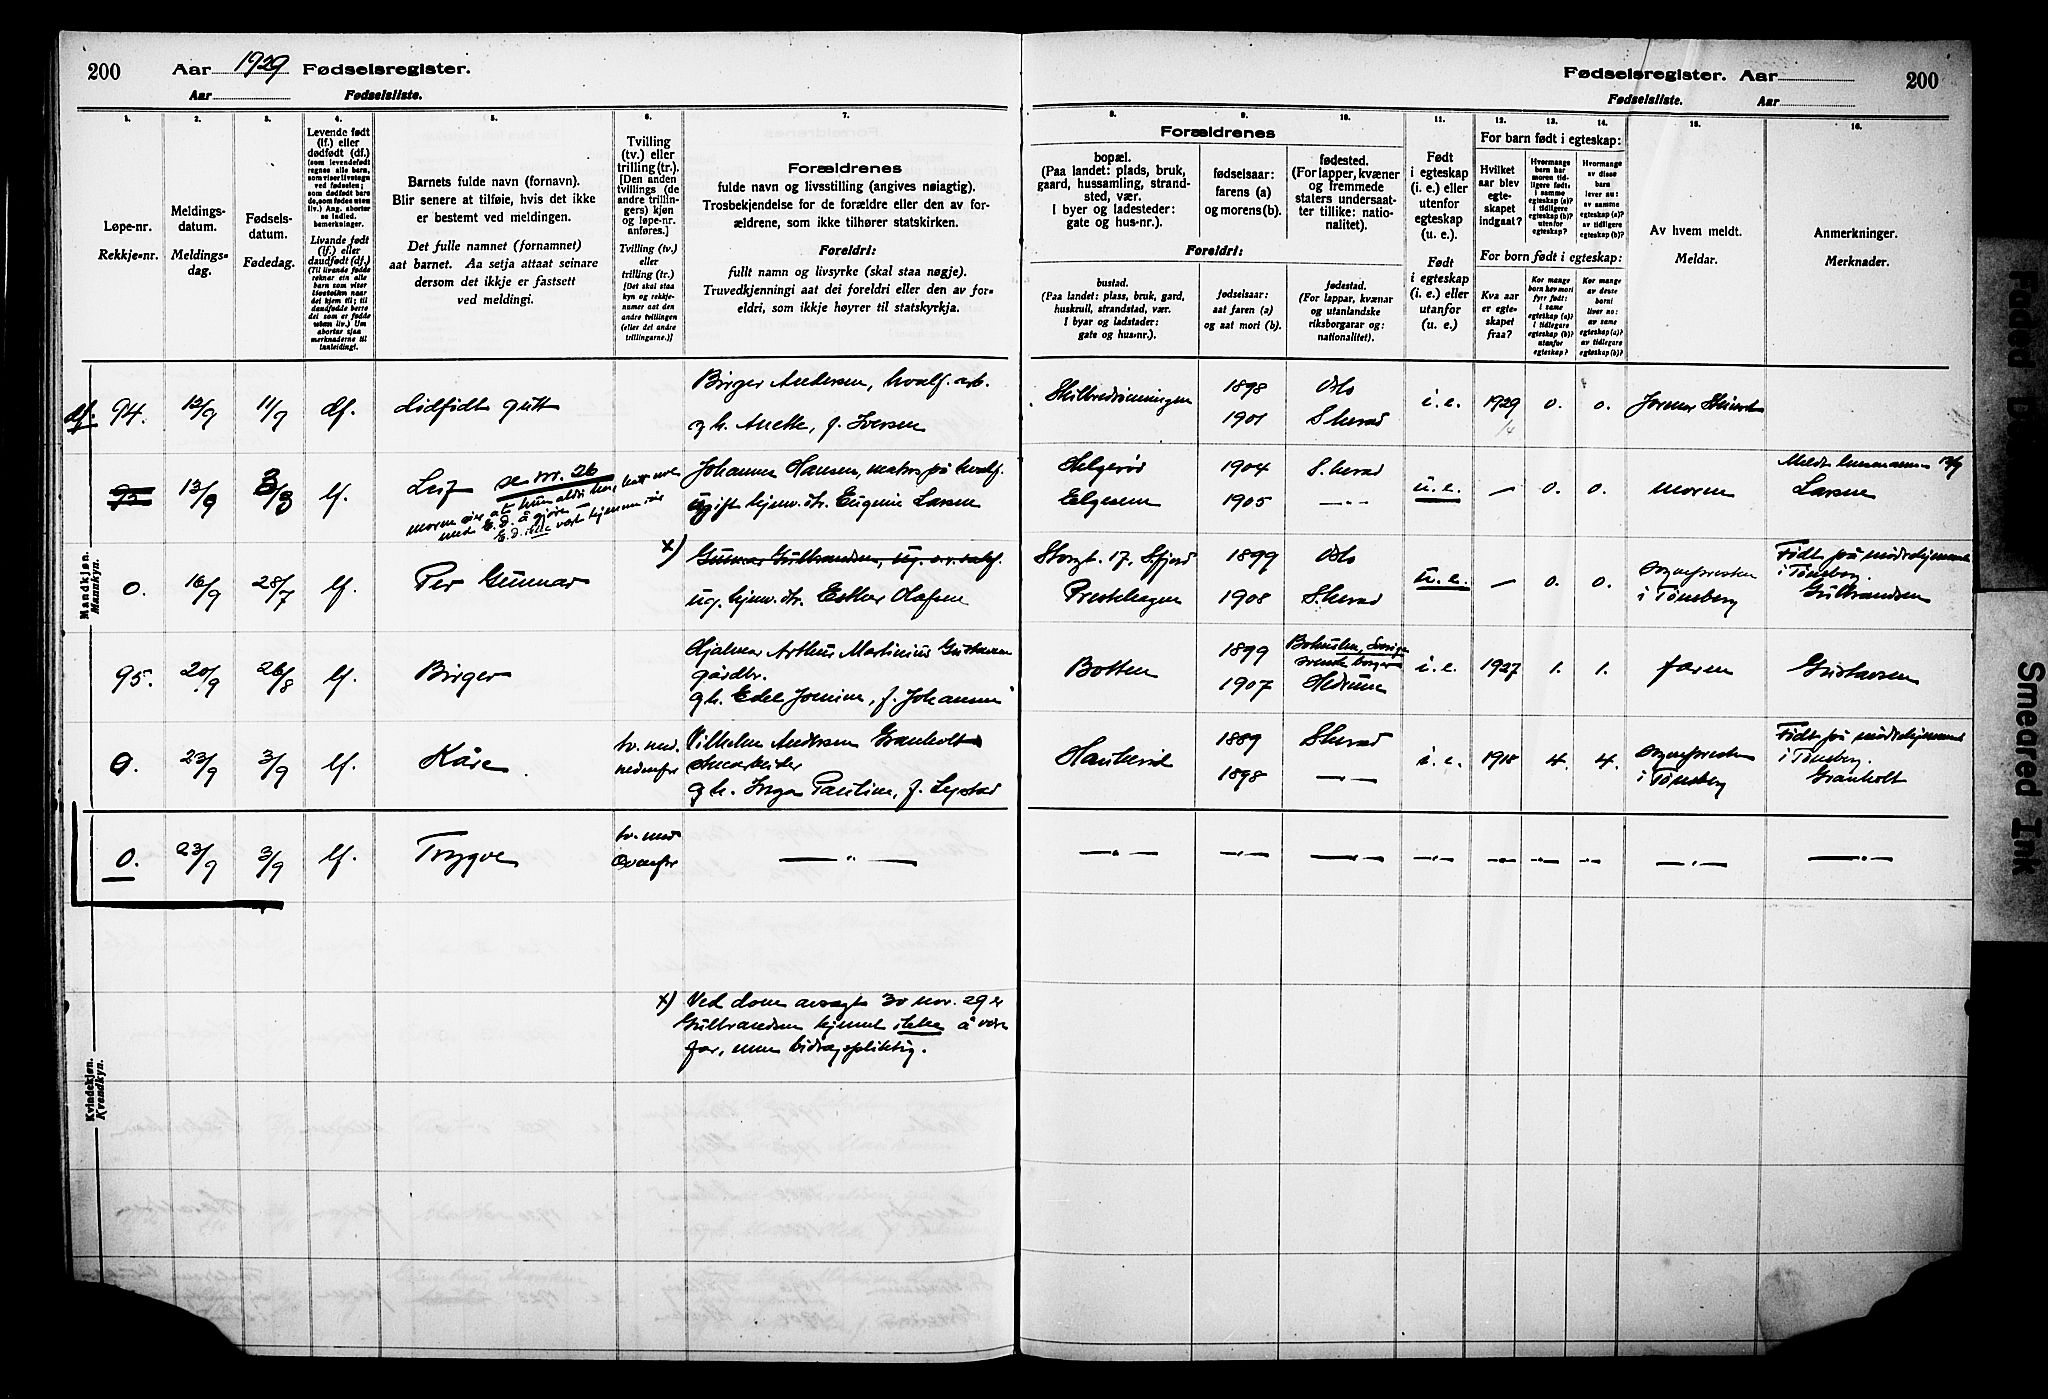 200 Aar 1929 Fødselsregister.
Aar Fødselsliste.
Fødselsregister. Aar 200
Fødselsliste. Aar
1. 2. 3. 4. 5. 6. 7. 8. 9. 10. 11. 12. 13. 14. 15. 16.
Løpe-nr.
Rekkje-nr.
Meldings-
datum.
Meldings-
dag.
Fødsels-
datum.
Fødedag.
Levende født
(lf.) eller
dødfødt (df.)
(som levendefødt
regnes alle barn,
som viser livstegn
ved fødselen;
som dødfødt barn
de, som fødes uten
liv.) Ang. aborter
se indled.
bemerkninger.
Livande født
(lf.) eller
daudfødt (df.)
(Til livande fødde
reknar ein alle
barn som viser
livsteikn naar
dei kjem til; til
daudfødde berre
dei som er fødde
utan liv.) Um
abortar sjaa
merknaderne til
innleiding!.
Barnets fulde navn (fornavn).
Blir senere at tilføie, hvis det ikke
er bestemt ved meldingen.
Det fulle namnet (fornamnet)
aat barnet. Aa setja attaat seinare
dersom det ikkje er fastsett
ved meldingi.
Tvilling
(tv.) eller
trilling (tr.).
[Den anden
tvillings (de
andre trillin-
gers) kjøn
og løpe-nr.
anføres.]
Tvilling (tv.)
eller
trilling (tr.)
[Det skal staa
kyn og rekkje-
numer aat den
andre tvillingen
(eller dei andre
trillingarne.)]
Forældrenes
fulde navn og livsstilling (angives nøiagtig).
Trosbekjendelse for de forældre eller den av for-
ældrene, som ikke tilhører statskirken.
Foreldri:
fullt namn og livsyrke (skal staa nøgje).
Truvedkjenningi aat dei foreldri eller den av for-
eldri, som ikkje høyrer til statskyrkja.
Forældrenes
bopæl.
(Paa landet: plads, bruk,
gaard, hussamling, strand-
sted, vær.
I byer og ladesteder:
gate og hus-nr.).
fødselsaar:
farens (a)
og morens (b).
fødested.
(For lapper, kvæner
og fremmede
staters undersaat-
ter tillike: natio-
nalitet).
Foreldri:
bustad.
(Paa landet: plass, bruk, gard,
huskrull, strandstad, vær.
I byar og ladstader:
gate og hus-nr.).
fødselsaar:
aat faren (a)
og aat mori (b).
fødestad.
(For lappar, kvænar
og utanlandske
riksborgarar og:
nationalitet).
Født
i egteskap
(i. e.) eller
utenfor
egteskap
(u. e.).
Født
i egteskap
(i. e.) eller
utanfor
(u. e.)
For barn født i egteskap:
Hvilket
aar blev
egte-
skapet
indgaat?
Hvormange
barn har
moren tid-
ligere født:
i samme
egteskap (a)?
i tidligere
egteskap (b)?
utenfor
egteskap?
Hvormange
av disse
barn
lever nu:
av samme
egteskap (a)?
av tidligere
egteskap (b)?
For barn født i egteskap:
Kva aar
er egte-
skapet
fraa?
Kor mange
barn hev mori
fyrr født:
i same
egteskap (a)?
i tidlegare
egteskap (b)?
utanfor
egteskap?
Kor mange
av desse
borni
liver nu:
av same
egteskap (a)?
av tidlegare
egteskap (b)?
Av hvem meldt.
Meldar.
Anmerkninger.
Merknader.
Mandkjøn.
Mannkyn.
df. 94. 12/9 11/9 df. Birger Andersen, hvalf. arb.
g. h. Anette, f. Iversen 1898 Oslo
1901 Sherad i. e. 1929 0. 0.
95 13/9 3/8 lf. Leif se nr. 26
Johannes Hansen, matros på hvalf.
ugift hjemv. dtr. Eugenie Larsen
Helgerød 1904 S.herad
Elgesem 1905 —„— u. e. — 0. 0. moren Larsen
0. 16/9 28/7 lf. Per Gunnar x) Gunnar Gulbrandsen,
ug. hjemv. dtr. Esther Olafsen
Storgt. 17, Sfjord 1899 Oslo
Prestehagen 1908 S.herad u. e. — 0. 0. sognepresten
i Tønsberg
Født på mødrehjemmet
i Tønsberg.
Gulbrandsen
95. 20/9 26/8 lf. Birger
Hjalmar Arthur Martinius Gustavsen
gårdbr.
g. h. Edel Jornine, f. Johansen
Botten 1899 Bohuslen, Sverige
svensk borger
1907 Hedrum i. e. 1927 1. 1. faren Gustavsen
0. 23/9 3/9 lf. Kåre. tv. med.
nedenfor
Vilhelm Andersen Granholt
g. h. Inga Pauline, f.
1889 Sherad
1898 —„— i. e. 1918 4. 4. sognepresten
i Tønsberg
Født på mødrehjemmet
i Tønsberg.
Granholt
0. 23/9 3/9 lf. Trygve tv. med
ovenfor —„— —„— —„— —„— —„— —„— —„— —„— —„— —„—
x) Ved dom avsagt 30 nov. 29 er
Gulbrandsen kjennt ikke å være
far, men bidragspliktig.
Kvindekjøn.
Kvendkyn.
Smeared Ink